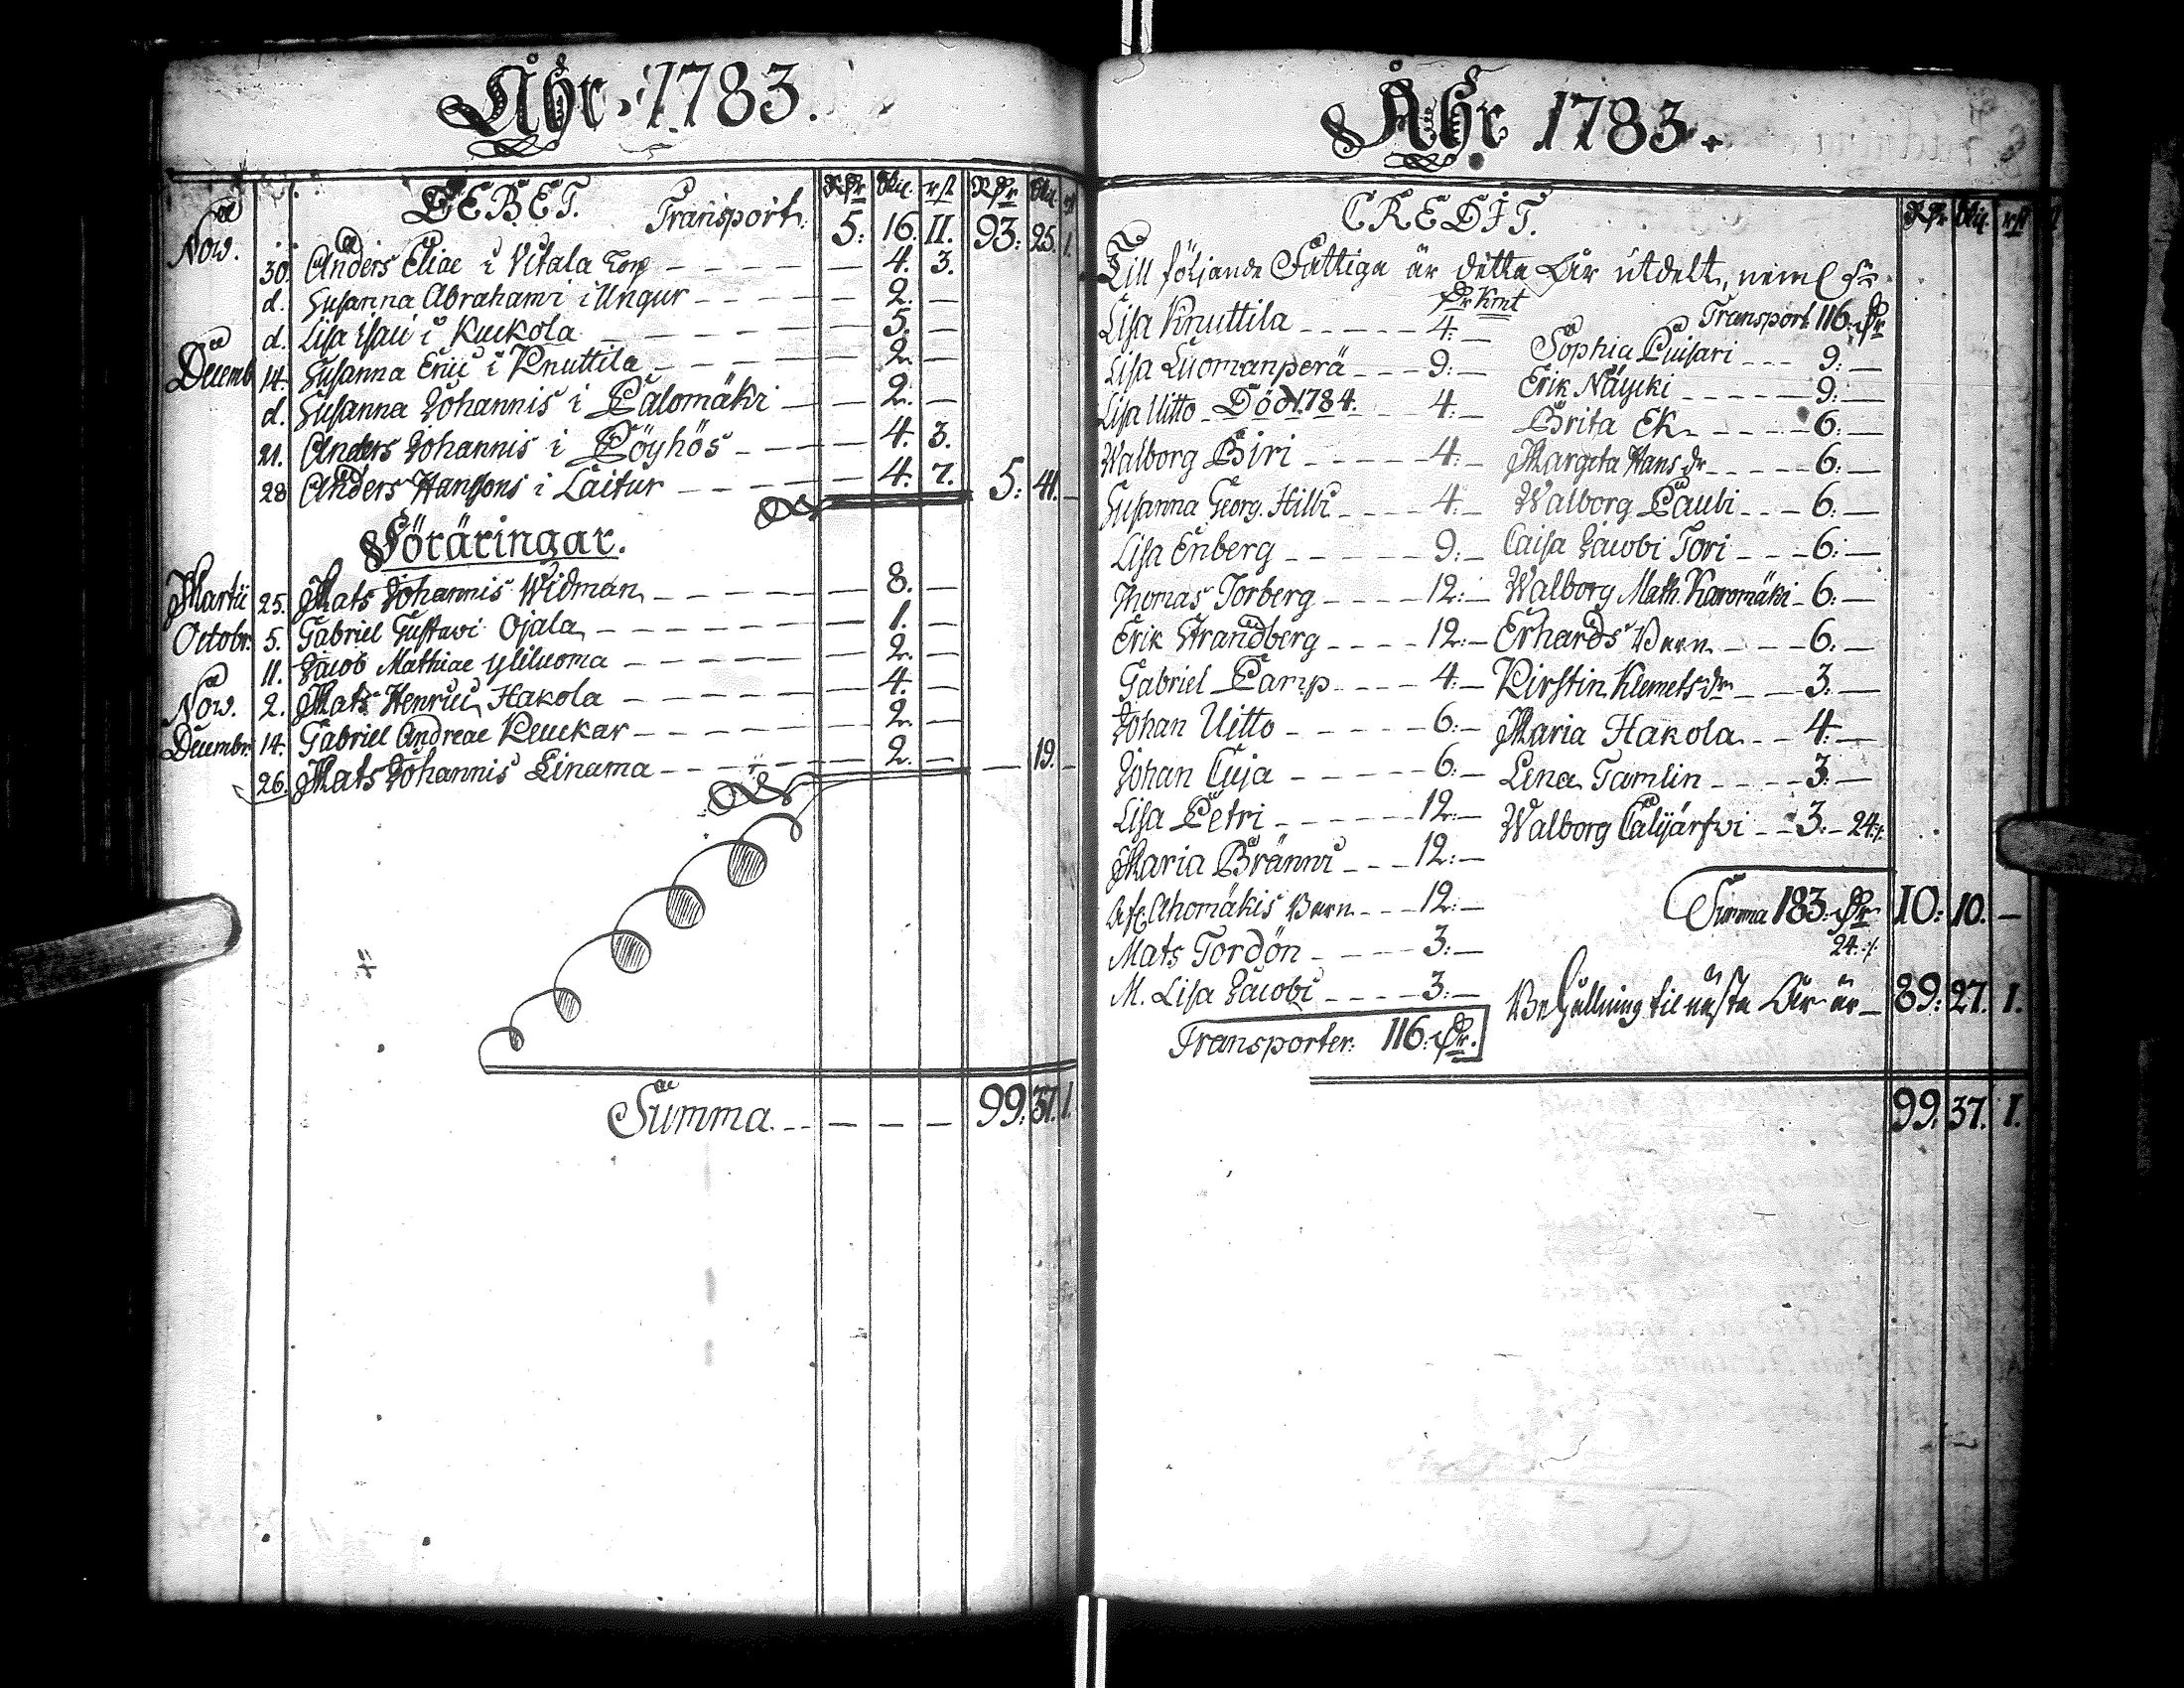 Åhr 1783.
DEBET. Transport. Rdr Skil. rst Rdr Skil. rst
5: 16. 11. 93: 25. 1.
Now. 30. Anders Eliae i Vitala Torp — 4. 3.
d. Susanna Abrahami i Ungur — 2. —
d. Lisa Esaii i Kuckola — 5. —
Decemb. 14. Susanna Erici i Knuttila — 2. —
d. Susanna Johannis i Palomäki — 2. —
21. Anders Johannis i Pöyhös — 4. 3.
28 Anders Hanssons i Laitur — 4. 7. 5: 41. —
Föräringar.
Martii 25. Mats Johannis Widman — 8. —
Octobr. 5. Gabriel Gustavi Ojala — 1. —
11. Jacob Mathiae Yliluoma — 2. —
Now. 2. Mats Henrici Hakola — 4. —
Decembr. 14. Gabriel Andreae Kluckar — 2. —
26. Mats Johannis Linama — 2. — — 19. —
Summa — — — 99: 37. 1.
Åhr 1783.
CREDIT. Rdr Skil. rst
Till följande Fattiga är detta År utdelt, neml
Dr Kmt
Lisa Knuttila 4: —
Lisa Luomanperä 9: —
Lisa Uitto Död 1784. 4: —
Walborg Biri 4: —
Susanna Georg. Hilli 4: —
Lisa Enberg 9: —
Thomas Torberg 12: —
Erik Strandberg 12: —
Gabriel Camp 4: —
Johan Uitto 6: —
Johan Cuja 6: —
Lisa Petri 12: —
Maria Bränni 12: —
Ahomäkis Barn 12: —
Mats Tordön 3: —
M. Lisa Jacobi 3: —
Transporter: 116: Dr.
Transport 116: Dr
Sophia Puisari 9: —
Erik Näycki 9: —
Brita Ek 6: —
Margeta Hans dr 6: —
Walborg Paubi 6: —
Caisa Jacobi Tori 6: —
Walborg Math. Karomäki 6: —
Erhards Barn 6: —
Kirstin Klemets dr 3: —
Maria Hakola 4: —
Lena Tamlin 3: —
Walborg Calijärfwi 3: 24:
Summa 183: Dr 10: 10. —
24:
Behållning til nästa År är — 89: 27. 1.
99: 37. 1.